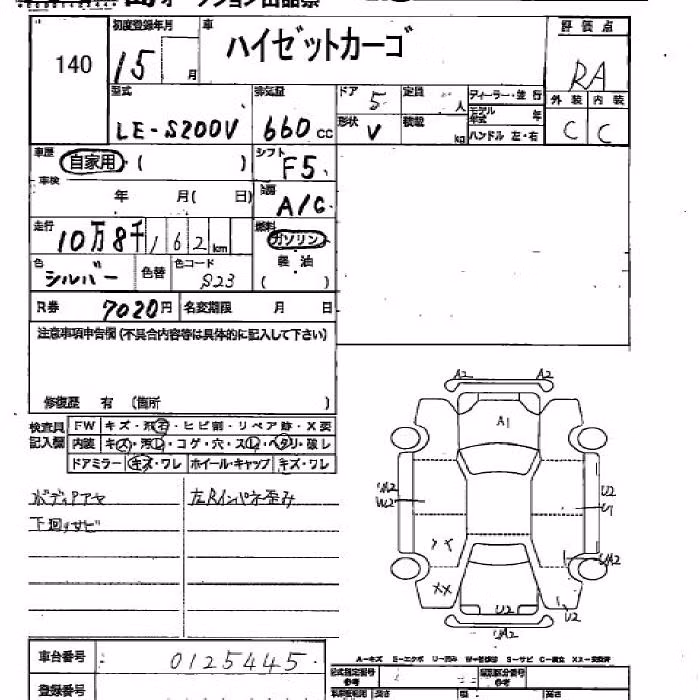 オークション出品票
140 初度登録年月 15 月 車 ハイゼットカーゴ 評価点 RA
型式 LE-S200V 排気量 660 cc ドア 5 定員 人 ディーラー・並行 外装 内装
形状 V 積載 kg モデル年式 年 C C
ハンドル 左・右
車歴 自家用・( ) シフト F5
車検 年 月( 日) 冷房 A/C
走行 10万8千162 km 燃料 ガソリン
色 シルバー 色替 色コード S23 軽油
( )
R券 7020円 名変期限 月 日
注意事項申告欄(不具合内容等は具体的に記入して下さい)
修復歴 有 (箇所 )
検査員 FW キズ・飛石・ヒビ割・リペア跡・X要
記入欄 内装 キズ・汚れ・コゲ・穴・スレ・ヘタリ・破レ
ドアミラー キズ・ワレ ホイール・キャップ キズ・ワレ
ボディアヤ 左Rインパネ歪み
下回りサビ
A2 A2
A1
U2
W2 U1
XX
XX
U2 U2
車台番号 0125445
A-キズ E-エクボ U-凹み S-サビ
登録番号